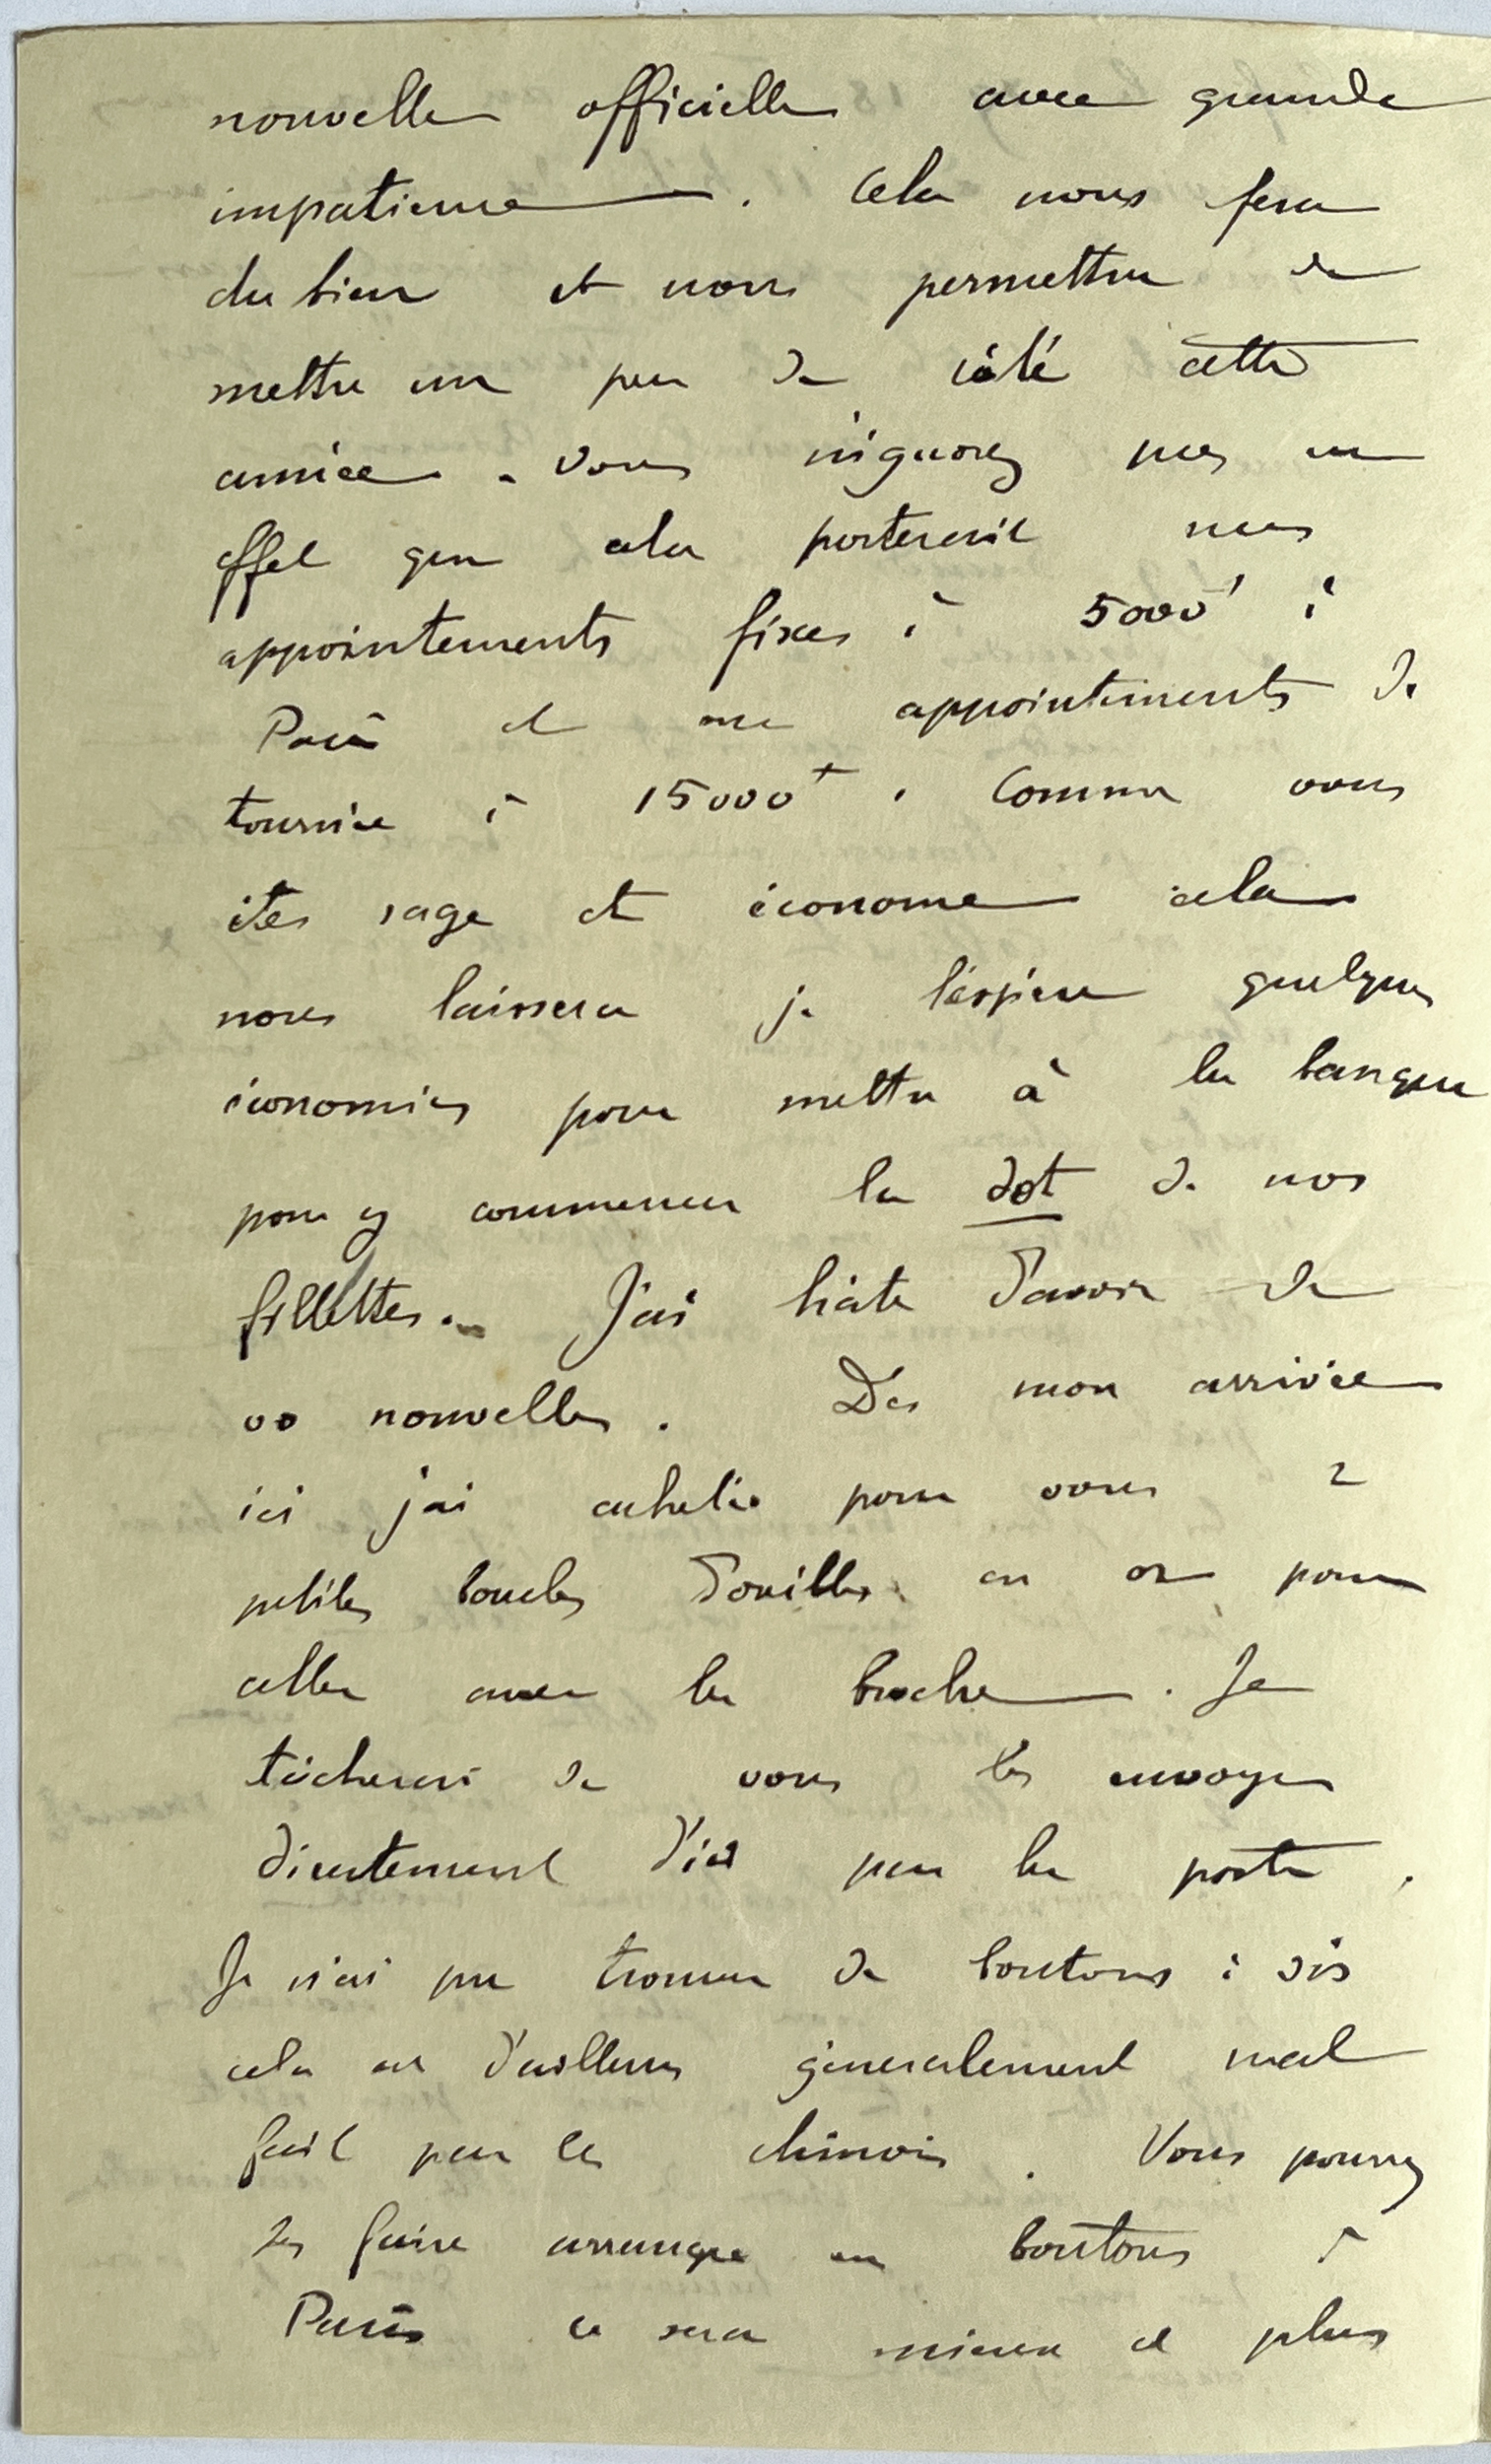 nouvelle officielle avec grande
impatience. Cela nous fera
du bien et nous permettra de
mettre un peu de côté cette
année. Vous n'ignorez pas en
effet que cela porterait mes
appointements fixes à 5000f à
Paris et mes appointements de
tournée à 15000f. Comme vous
êtes sage et économe cela
nous laissera je l'espère quelques
économies pour mettre à la banque
pour y commencer la dot de nos
fillettes. J'ai hâte d'avoir de
vos nouvelles. Dès mon arrivée
ici j'ai acheté pour vous 2
petites boucles d'oreilles en or pour
aller avec la broche. Je
tâcherai de vous les envoyer
directement d'ici par la poste.
Je n'ai pu trouver de boutons à vis
cela est d'ailleurs généralement mal
fait par les chinois. Vous pourrez
les faire arranger en boutons à
Paris ce sera mieux et plus